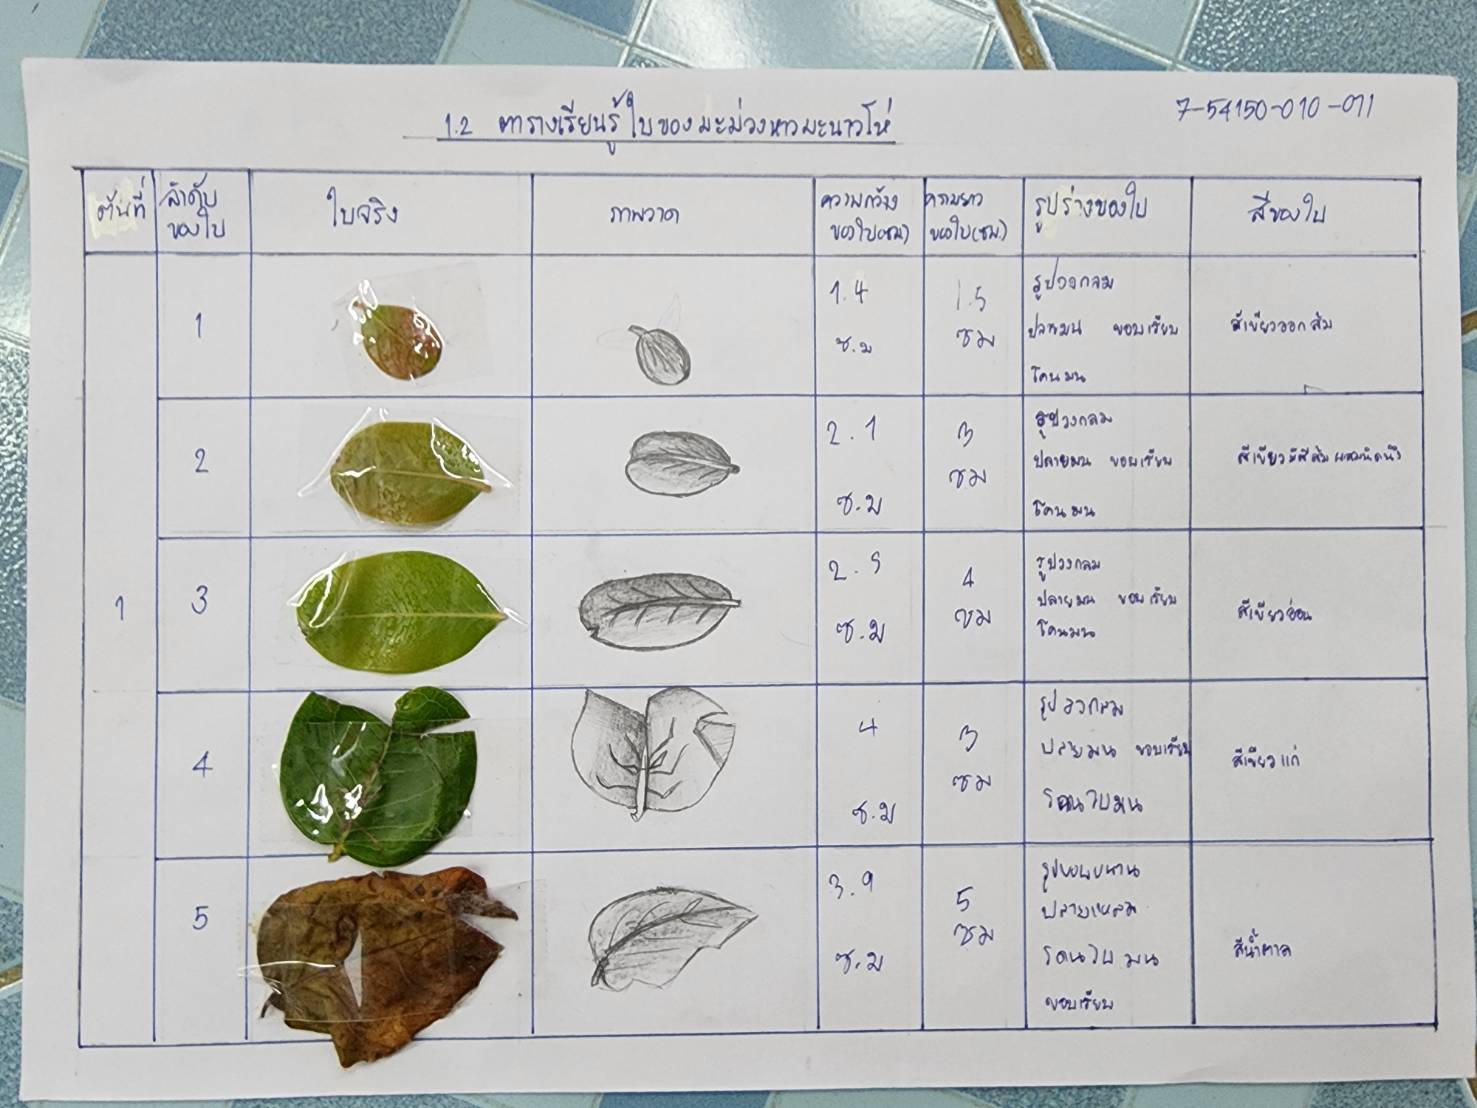 7-54150-010-011
1.2 ตารางเรียนรู้ใบของมะม่วงหาวมะนาวโห่
ต้นที่
ลำดับ
ของใบ
ใบจริง
ภาพวาด
ความกว้าง
ของใบ(ซม)
ความยาว
ของใบ(ซม.)
รูปร่างของใบ
สีของใบ
1
1
1.4
ซ.ม
1.5
ซม
รูปวงกลม
ปลายมน ขอบเรียบ
โคนมน
สีเขียวออกส้ม
2
2.1
ซ.ม
3
ซม
รูปวงกลม
ปลายมน ขอบเรียบ
โคนมน
สีเขียวมีสีส้มผสมนิดนึง
3
2.5
ซ.ม
4
ซม
รูปวงกลม
ปลายมน ขอบเรียบ
โคนมน
สีเขียวอ่อน
4
4
ซ.ม
3
ซม
รูปวงกลม
ปลายมน ขอบเรียบ
โคนใบมน
สีเขียวแก่
5
3.9
ซ.ม
5
ซม
รูปขอบขนาน
ปลายแหลม
โคนใบ มน
ขอบเรียบ
สีน้ำตาล